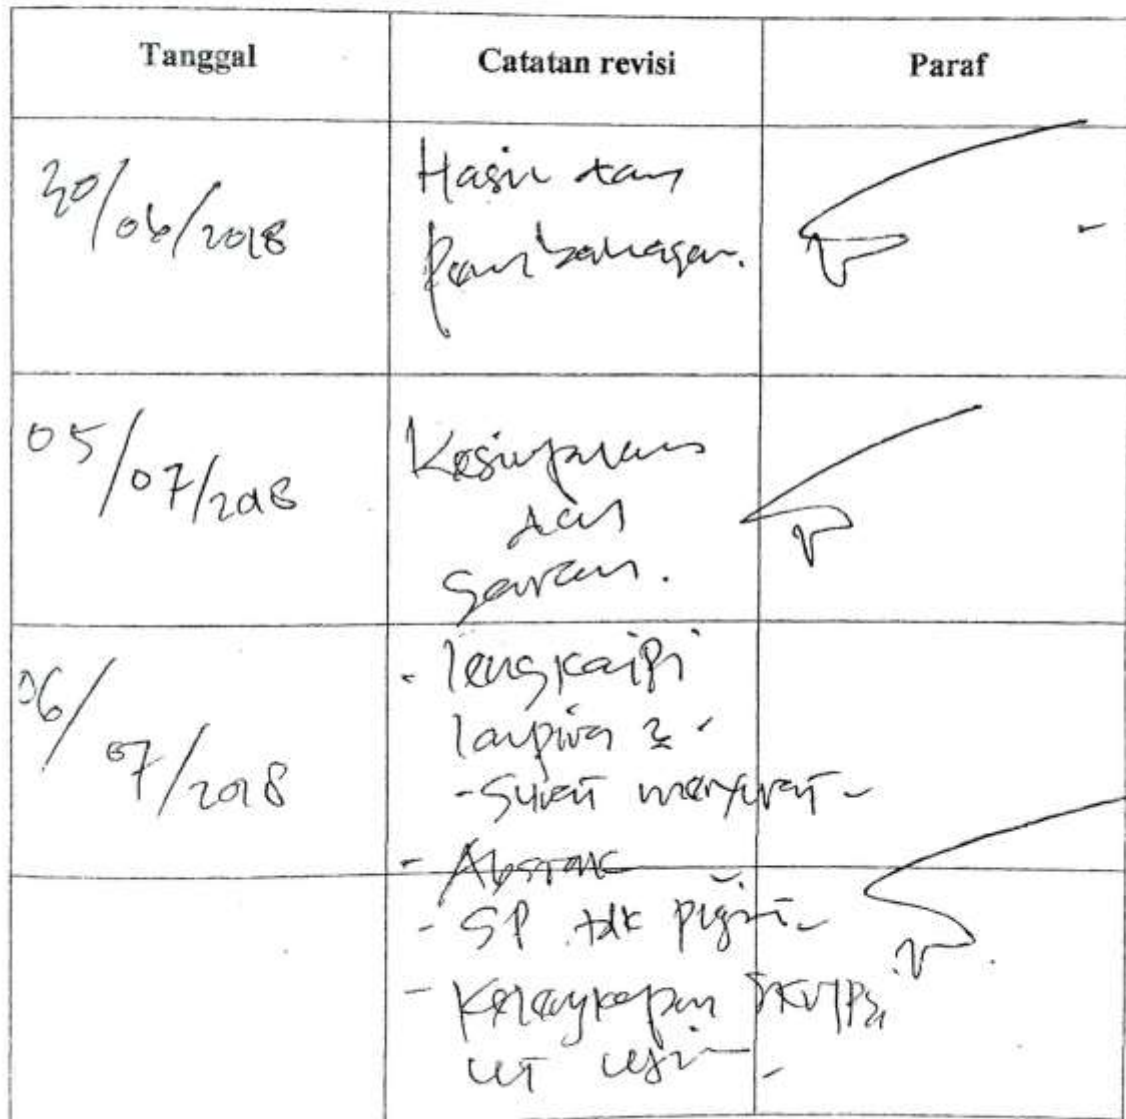 Tanggal Catatan revisi Paraf
30/06/2018 Hasil dan
pembahasan.
05/07/2018 Kesimpulan
dan
Saran.
06/07/2018 - lengkapi
lampiran 2 -
- Surat menyurat -
- Abstrak
- SP. tdk plgiat -
- Kelengkapan skripsi